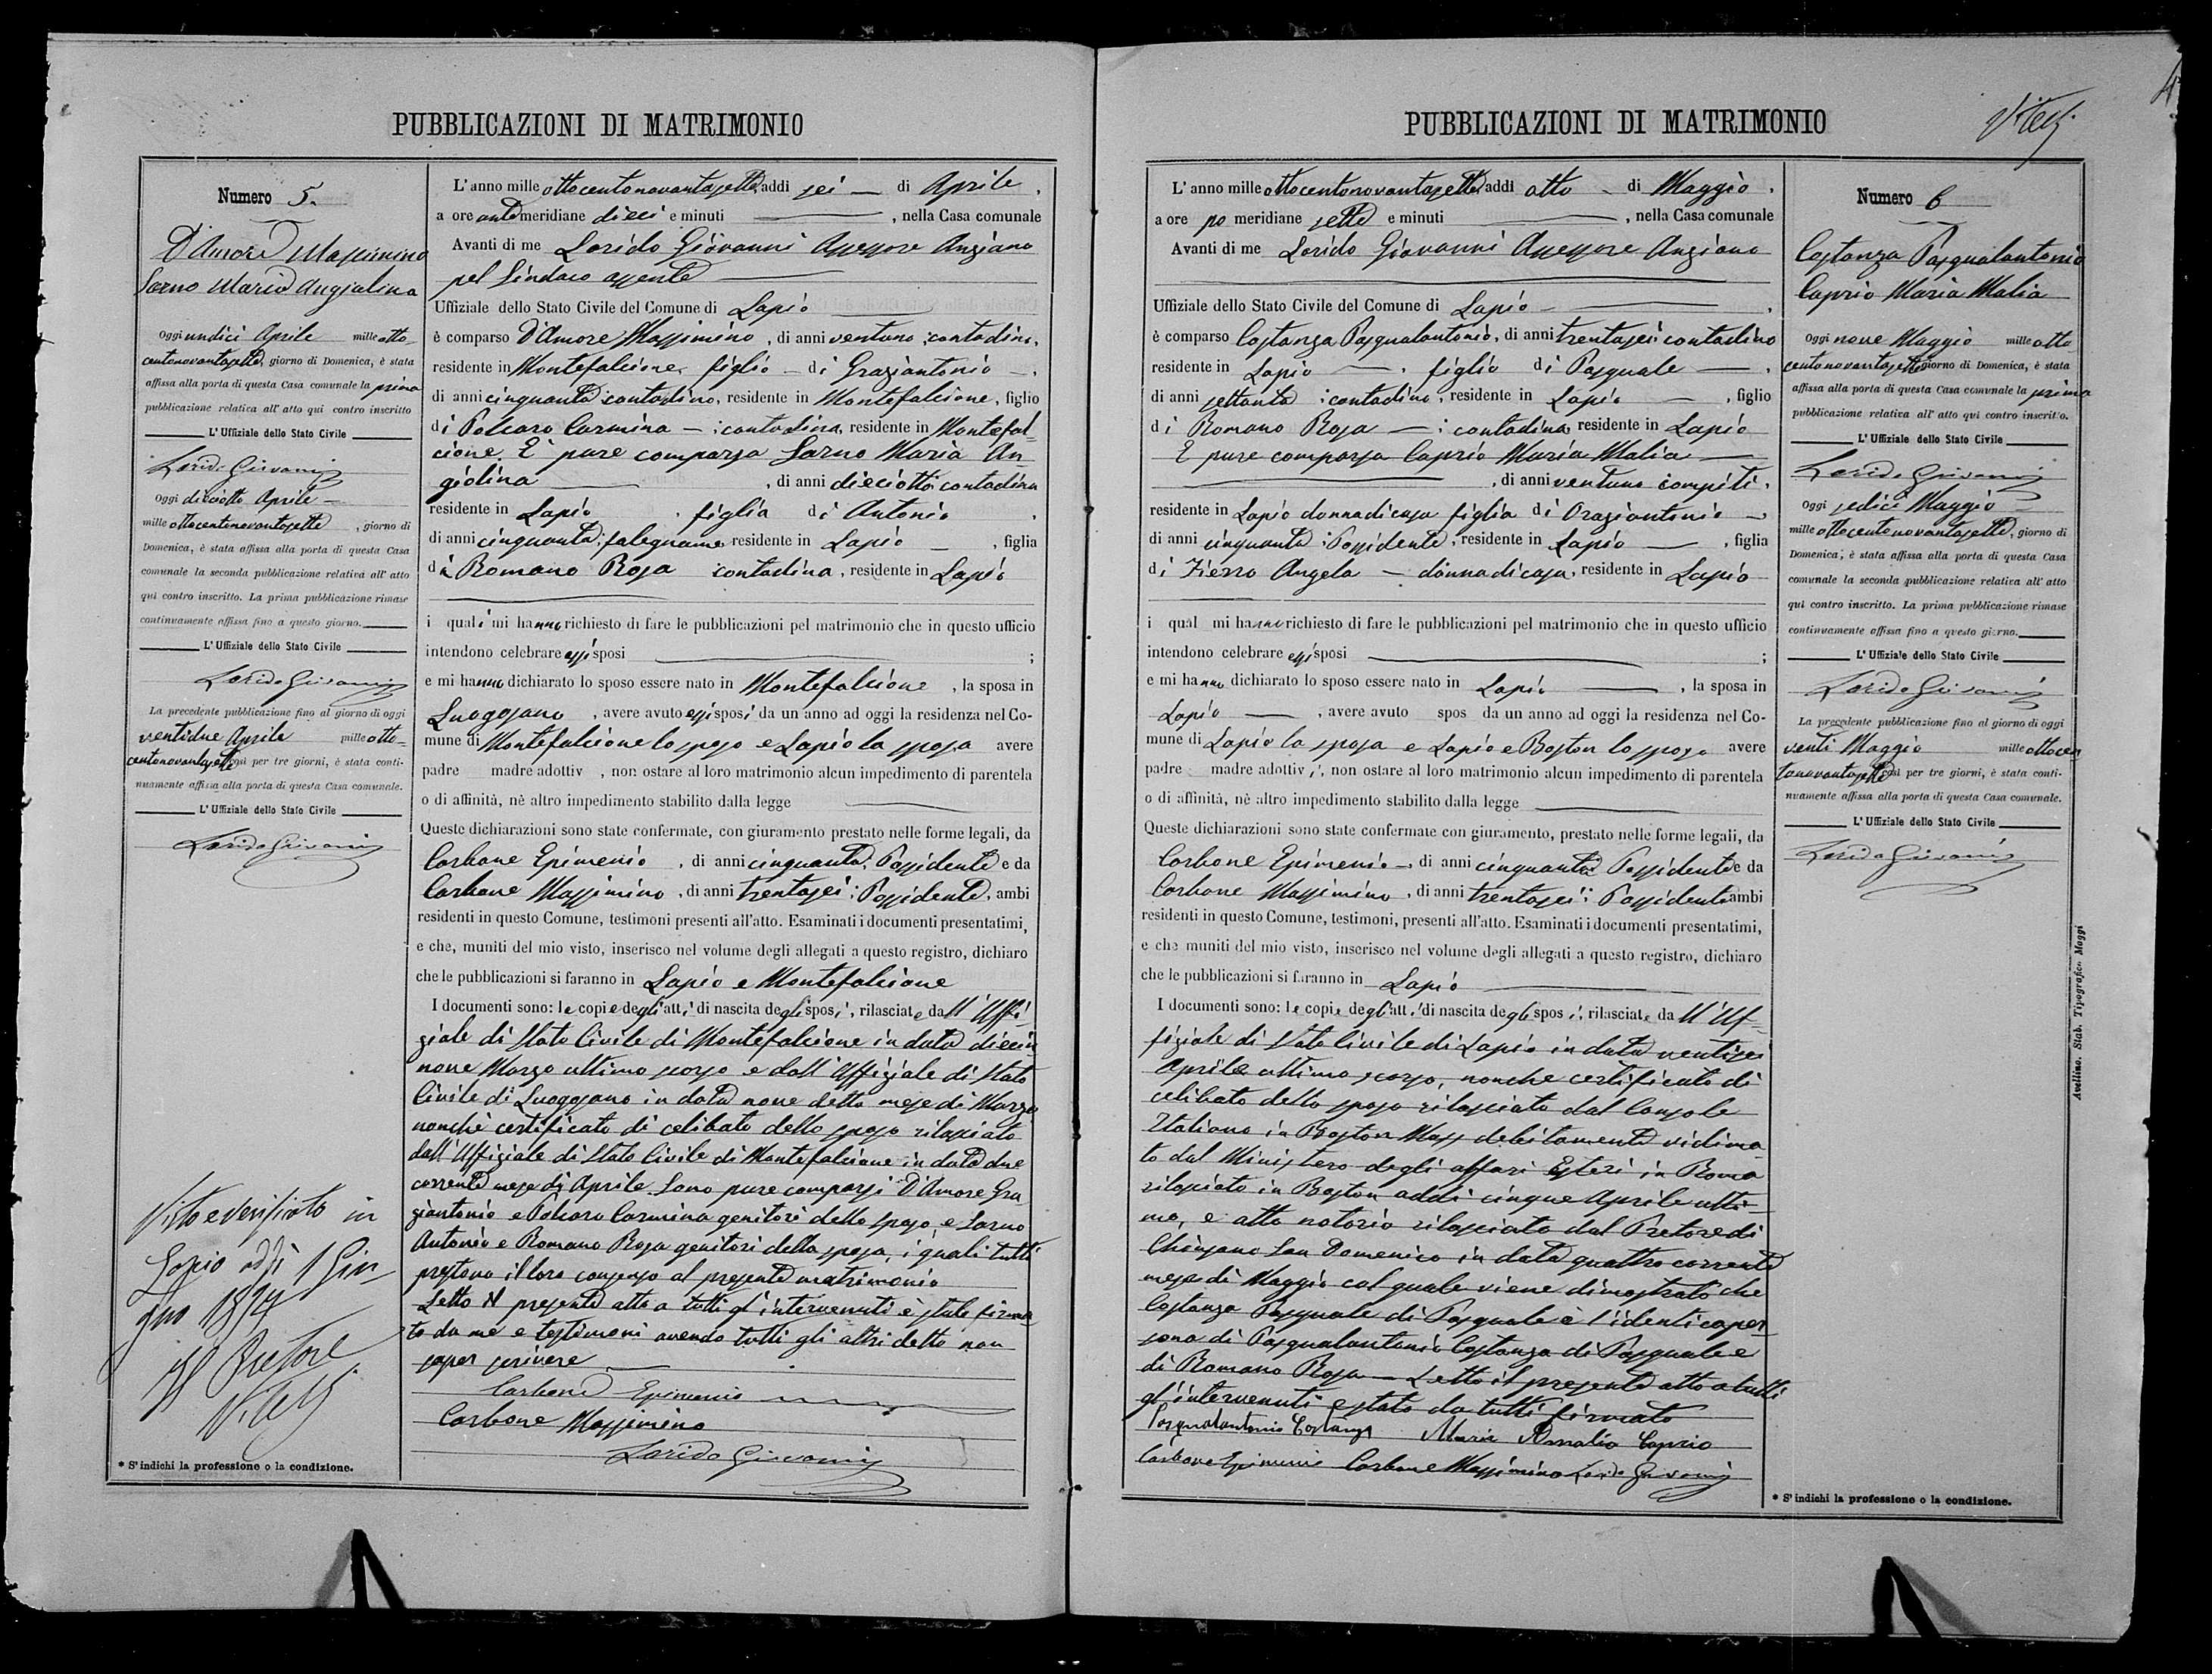 PUBBLICAZIONI DI MATRIMONIO
Numero 5.
D'Amore Massimino
Sarno Maria Angiolina
Oggi undici Aprile mille otto
centonovantasette, giorno di Domenica, è stata
affissa alla porta di questa Casa comunale la prima
pubblicazione relativa all'atto qui contro inscritto
L'Uffiziale dello Stato Civile
Lorido Giovanni
Oggi diciotto Aprile
mille ottocentonovantasette, giorno di
Domenica, è stata affissa alla porta di questa Casa
comunale la seconda pubblicazione relativa all'atto
qui contro inscritto. La prima pubblicazione rimase
continuamente affissa fino a questo giorno.
L'Uffiziale dello Stato Civile
Lorido Giovanni
La precedente pubblicazione fino al giorno di oggi
ventidue Aprile mille otto-
centonovantasette così per tre giorni, è stata conti-
nuamente affissa alla porta di questa Casa comunale.
L'Uffiziale dello Stato Civile
Lorido Giovanni
Visto e verificato in
Lapio addì 1 Giu-
gno
Il Pretore
* S'indichi la professione o la condizione.
L'anno mille ottocentonovantasette, addì sei di Aprile,
a ore antemeridiane dieci e minuti , nella Casa comunale
Avanti di me Lorido Giovanni Assessore Anziano
pel Sindaco assente
Uffiziale dello Stato Civile del Comune di Lapio
è comparso D'Amore Massimino, di anni ventuno contadino,
residente in Montefalcione, figlio di Graziantonio,
di anni cinquanta contadino, residente in Montefalcione, figlio
di Polcaro Carmina contadina, residente in Montefal-
cione. È pure comparsa Sarno Maria An
giolina , di anni dieciotto contadina
residente in Lapio, figlia di Antonio,
di anni cinquanta, falegname residente in Lapio, figlia
di Romano Rosa contadina, residente in Lapio
i quali mi hanno richiesto di fare le pubblicazioni pel matrimonio che in questo ufficio
intendono celebrare essi sposi ;
e mi hanno dichiarato lo sposo essere nato in Montefalcione, la sposa in
Luogosano, avere avuto essi sposi da un anno ad oggi la residenza nel Co-
mune di Montefalcione lo sposo e Lapio la sposa avere
padre madre adottiv , non ostare al loro matrimonio alcun impedimento di parentela
o di affinità, nè altro impedimento stabilito dalla legge
Queste dichiarazioni sono state confermate, con giuramento prestato nelle forme legali, da
Carbone Epimenio, di anni cinquanta, Possidente e da
Carbone Massimino, di anni trentasei: Possidente, ambi
residenti in questo Comune, testimoni presenti all'atto. Esaminati i documenti presentatimi,
e che, muniti del mio visto, inserisco nel volume degli allegati a questo registro, dichiaro
che le pubblicazioni si faranno in Lapio e Montefalcione
I documenti sono: le copie degli atti di nascita degli sposi, rilasciate dall'Uffi-
ziale di Stato Civile di Montefalcione in data diecin
nove Marzo ultimo scorso e dall'Uffiziale di Stato
Civile di Luogosano in data nove detto mese di Marzo
nonchè certificato di celibato dello sposo rilasciato
dall'Uffiziale di Stato Civile di Montefalcione in data due
corrente mese di Aprile. Sono pure comparsi D'Amore Gra
ziantonio e Polcaro Carmina genitori dello sposo e Sarno
Antonio e Romano Rosa genitori della sposa, i quali tutti
prestano il loro consenso al presente matrimonio
Letto il presente atto a tutti gl'intervenuti è stato firma
to da me e testimoni avendo tutti gli altri detto non
saper scrivere
Carbone Epimenio
Carbone Massimino
Lorido Giovanni
PUBBLICAZIONI DI MATRIMONIO
L'anno mille ottocentonovantasette, addì otto di Maggio,
a ore po meridiane sette e minuti , nella Casa comunale
Avanti di me Lorido Giovanni Assessore Anziano
Uffiziale dello Stato Civile del Comune di Lapio
è comparso Costanza Pasqualantonio, di anni trentasei contadino
residente in Lapio, figlio di Pasquale,
di anni settanta contadino, residente in Lapio, figlio
di Romano Rosa contadina residente in Lapio
È pure comparsa Caprio Maria Malia
, di anni ventuno compiti,
residente in Lapio donna di casa figlia di Oraziantonio
di anni cinquanta Possidente, residente in Lapio, figlia
di Fierro Angela donna di casa, residente in Lapio
i qual mi hanno richiesto di fare le pubblicazioni pel matrimonio che in questo ufficio
intendono celebrare essi sposi ;
e mi hanno dichiarato lo sposo essere nato in Lapio, la sposa in
Lapio, avere avuto spos da un anno ad oggi la residenza nel Co-
mune di Lapio la sposa e Lapio e Boston lo sposo avere
padre madre adottivi, non ostare al loro matrimonio alcun impedimento di parentela
o di affinità, nè altro impedimento stabilito dalla legge
Queste dichiarazioni sono state confermate con giuramento, prestato nelle forme legali, da
Carbone Epimenio, di anni cinquanta Possidente e da
Carbone Massimino, di anni trentasei: Possidente ambi
residenti in questo Comune, testimoni, presenti all'atto. Esaminati i documenti presentatimi,
e che muniti del mio visto, inserisco nel volume degli allegati a questo registro, dichiaro
che le pubblicazioni si faranno in Lapio
I documenti sono: le copie degli atti di nascita degli sposi, rilasciate dall'Uf-
fiziale di Stato Civile di Lapio in data ventisei
Aprile ultimo scorso, nonche certificato di
celibato dello sposo rilasciato dal Console
Italiano in Boston Mass debitamente vidima
to dal Ministero degli affari Esteri in Roma
rilasciato in Boston addì cinque Aprile ulti-
mo, e atto notorio rilasciato dal Pretore di
Chiusano San Domenico in data quattro corrente
mese di Maggio col quale viene dimostrato che
Costanza Pasquale di Pasquale è l'identica per
sona di Pasqualantonio Costanza di Pasquale e
di Romano Rosa Letto il presente atto a tutti
gl'intervenuti è stato da tutti firmato
Pasqualantonio Costanza Maria Caprio
Carbone Epimenio Carbone Massimino Lorido Giovanni
Numero 6
Costanza Pasqualantonio
Caprio Maria Malia
Oggi nove Maggio mille otto
centonovantasette giorno di Domenica, è stata
affissa alla porta di questa Casa comunale la prima
pubblicazione relativa all'atto qui contro inscritto.
L'Uffiziale dello Stato Civile
Lorido Giovanni
Oggi sedici Maggio
mille ottocentonovantasette, giorno di
Domenica, è stata affissa alla porta di questa Casa
comunale la seconda pubblicazione relativa all'atto
qui contro inscritto. La prima pubblicazione rimase
continuamente affissa fino a questo giorno.
L'Uffiziale dello Stato Civile
Lorido Giovanni
La precedente pubblicazione fino al giorno di oggi
venti Maggio mille ottocen
tonovantasette così per tre giorni, è stata conti-
nuamente affissa alla porta di questa Casa comunale.
L'Uffiziale dello Stato Civile
Lorido Giovanni
Avellino. Stab. Tipografico Maggi
* S'indichi la professione o la condizione.